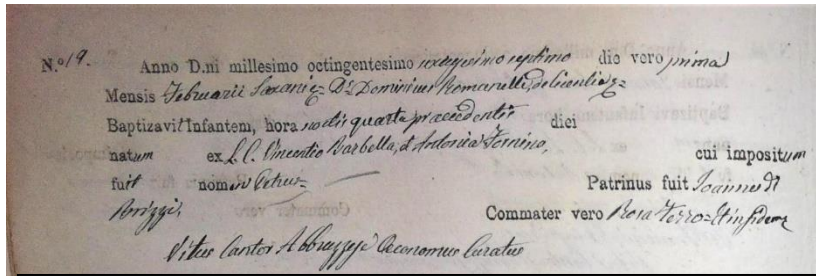 N.º 19. Anno D.ni millesimo octingentesimo sexagesimo septimo die vero prima
Mensis Februarii D. Dominicus Romanelli, de licentia
Baptizavit Infantem, hora noctis quarta praecedentis diei
natum ex L. C. Vincentio Barbella, et Antonia Fornino, cui impositum
fuit nomen Petrus. Patrinus fuit Joannes Di
Brizzi, Commater vero Rosa Ferro. Et in fidem
Vitus Cantor Abbruzzese Oeconomus Curatus